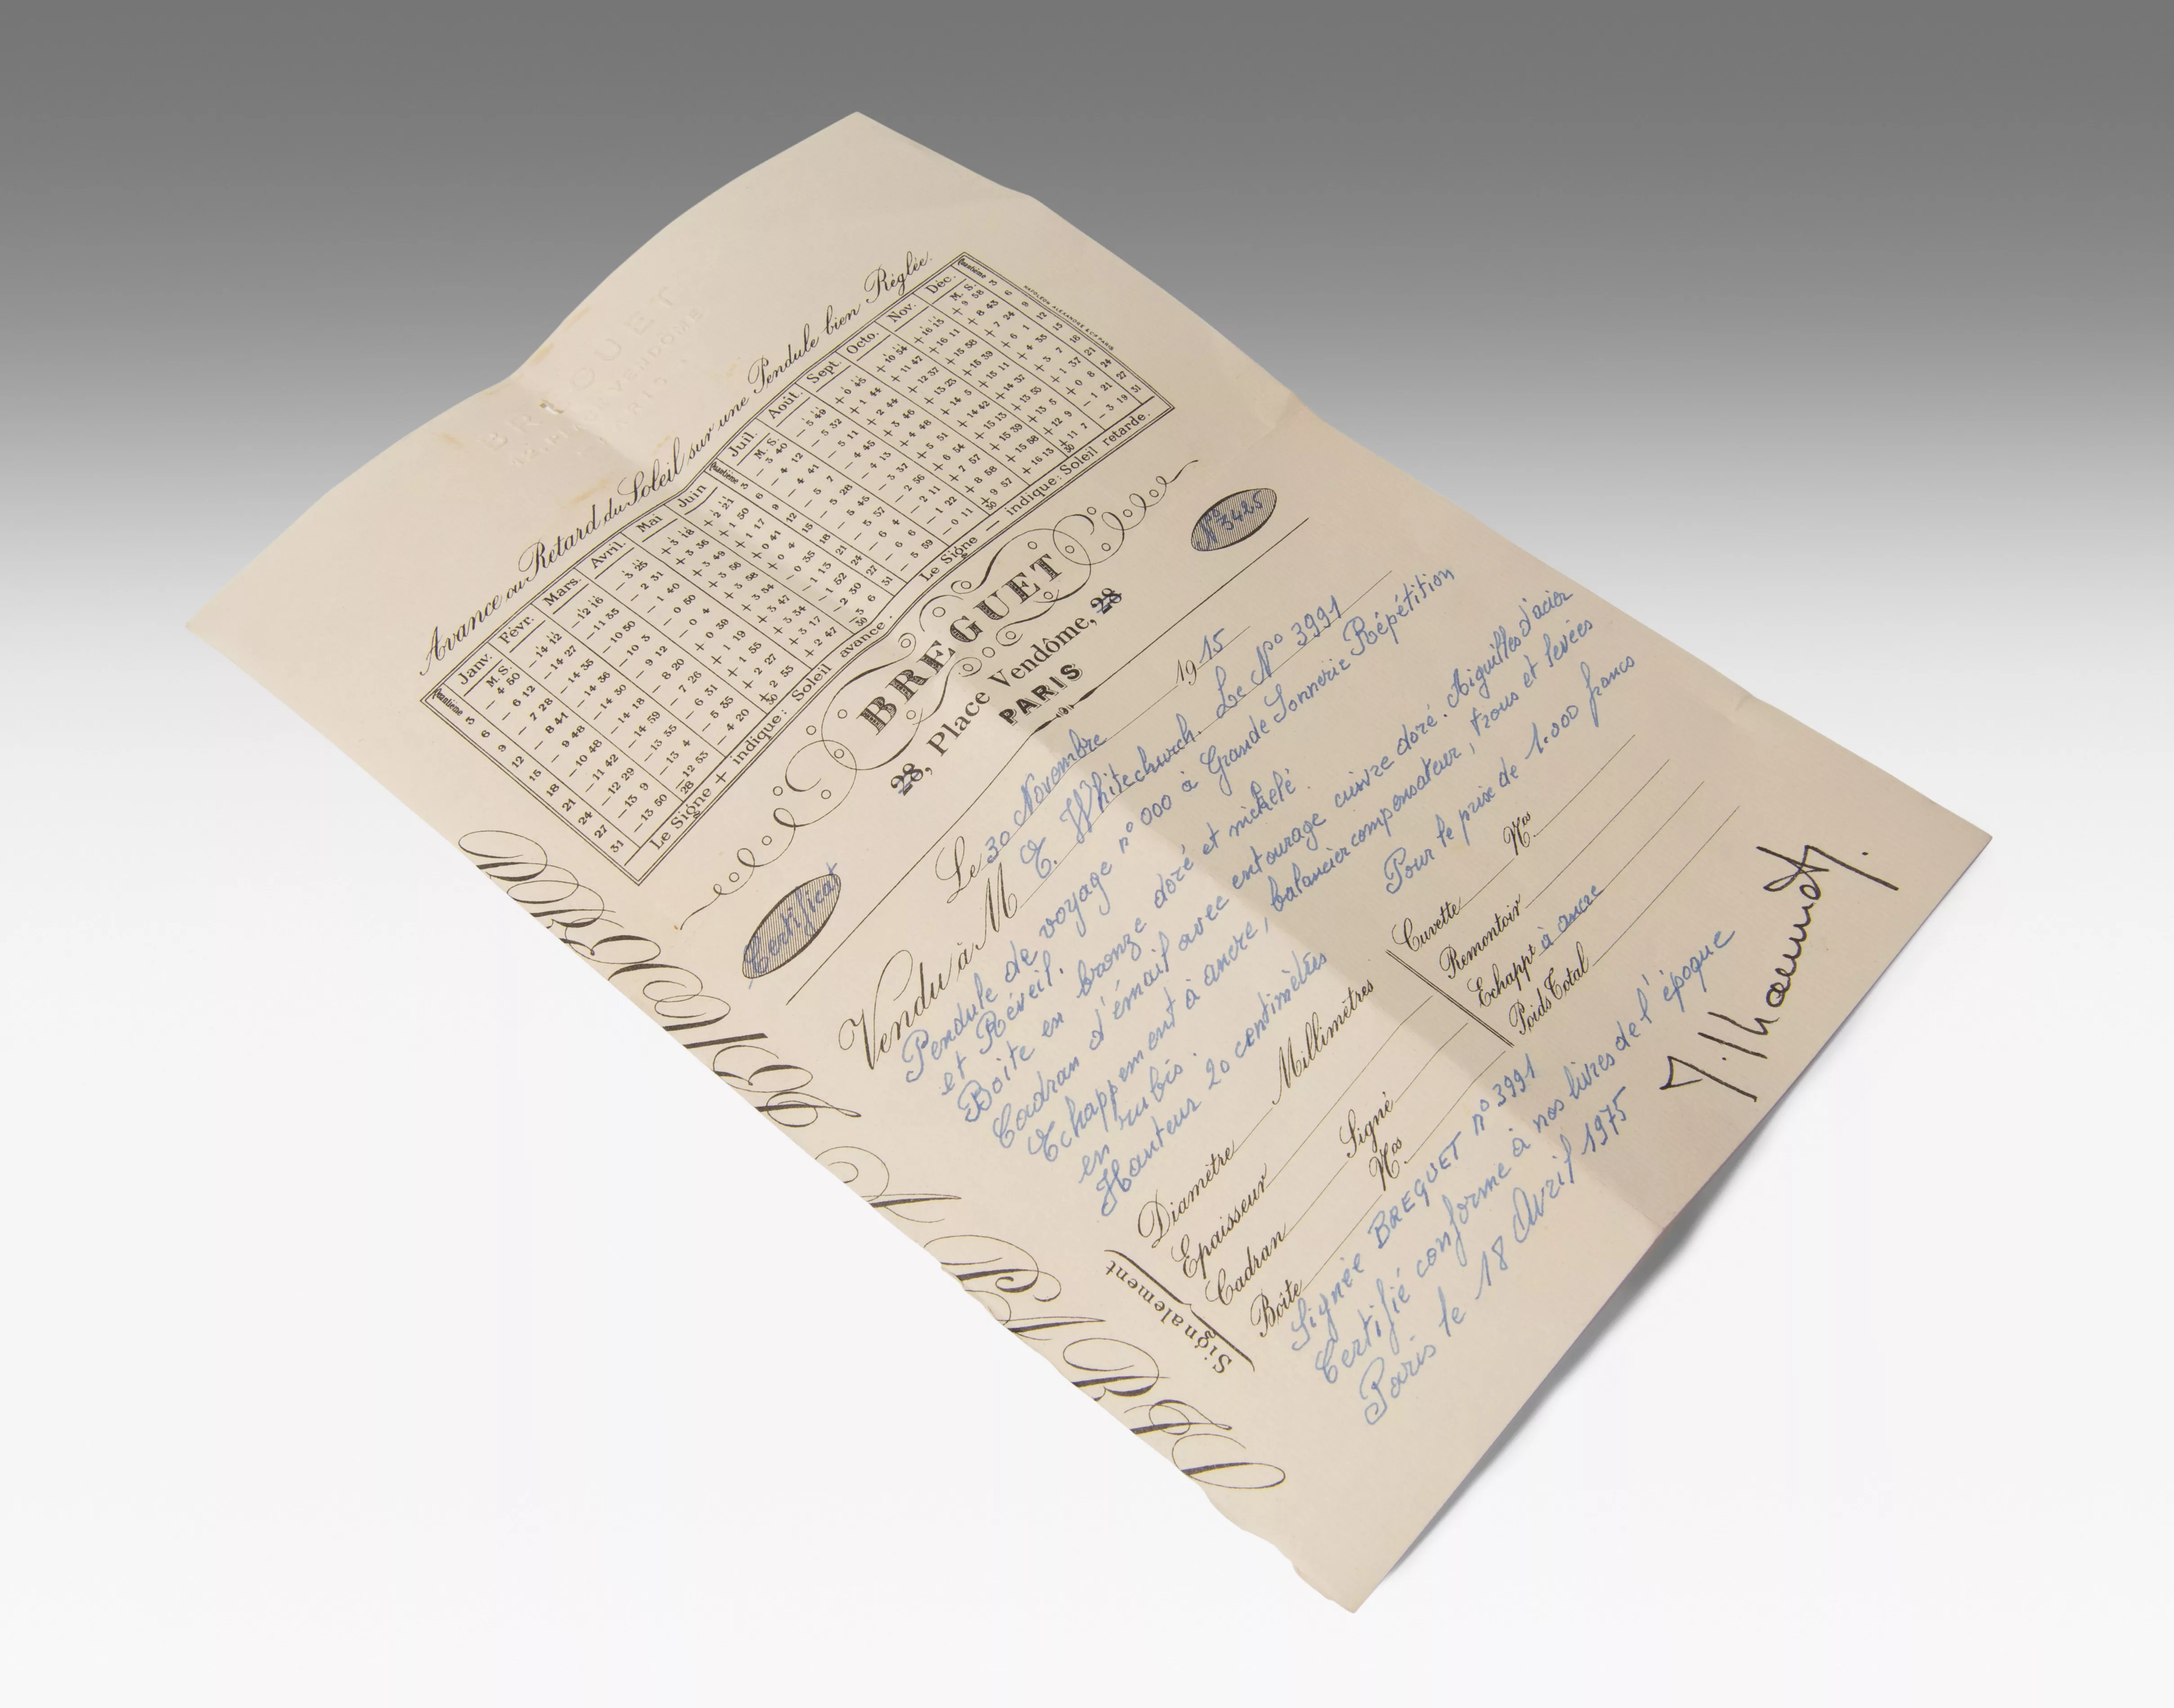 BREGUET
Avance ou Retard du Soleil sur une Pendule bien Réglée.
Quantième Janv. Févr. Mars. Avril. Mai Juin Quantième Juil. Août. Sept. Octo. Nov. Déc. Quantième
M. S. M. S. M. S.
3 - 4 50 - 14 12 - 12 16 - 3 25 + 3 18 + 2 21 3 - 3 40 - 5 49 + 0 45 + 10 54 + 16 15 + 9 58 3
6 - 6 12 - 14 27 - 11 35 - 2 31 + 3 36 + 1 50 6 - 4 12 - 5 32 + 1 44 + 11 47 + 16 11 + 8 43 6
9 - 7 28 - 14 35 - 10 50 - 1 40 + 3 49 + 1 17 9 - 4 41 - 5 11 + 2 44 + 12 37 + 15 58 + 7 24 9
12 - 8 41 - 14 36 - 10 3 - 0 50 + 3 56 + 0 41 12 - 5 7 - 4 45 + 3 46 + 13 23 + 15 39 + 6 1 12
15 - 9 48 - 14 30 - 9 12 - 0 4 + 3 58 + 0 4 15 - 5 28 - 4 13 + 4 48 + 14 5 + 15 11 + 4 35 15
18 - 10 48 - 14 18 - 8 20 + 0 39 + 3 54 - 0 35 18 - 5 45 - 3 37 + 5 51 + 14 42 + 14 37 + 3 7 18
21 - 11 42 - 14 59 - 7 26 + 1 19 + 3 47 - 1 13 21 - 5 57 - 2 56 + 6 54 + 15 13 + 13 55 + 1 37 21
24 - 12 29 - 13 35 - 6 31 + 1 55 + 3 34 - 1 52 24 - 6 4 - 2 11 + 7 57 + 15 39 + 13 5 + 0 8 24
27 - 13 9 - 13 4 - 5 35 + 2 27 + 3 17 - 2 30 27 - 6 6 - 1 22 + 8 58 + 15 58 + 12 9 - 1 21 27
31 - 13 50 - 12 53 28 - 4 20 + 2 55 30 + 2 47 - 3 6 30 31 - 5 59 - 0 11 + 9 57 30 + 16 13 + 11 7 30 - 3 19 31
Le Signe + indique: Soleil avance. Le Signe — indique: Soleil retarde.
NAPOLÉON ALEXANDRE & Cie PARIS
BREGUET
28, Place Vendôme, 28
PARIS
Certificat
Nº 3425
Le 30 Novembre 1915
Vendu à M E. Whitechurch. Le Nº 3991
Pendule de voyage nº 000 à Grande Sonnerie Répétition
et Réveil.
Boîte en bronze doré et nickelé.
Cadran d'émail avec entourage cuivre doré. Aiguilles d'acier
Echappement à ancre, balancier compensateur, trous et levées
en rubis.
Hauteur 20 centimètres
Pour le prix de 1.000 francs
Signalement
Diamètre Millimètres
Epaisseur
Cadran Signé
Boîte Nos
Cuvette Nos
Remontoir
Echappt à ancre
Poids Total
Signée BREGUET nº 3991
Certifié conforme à nos livres de l'époque
Paris le 18 Avril 1975